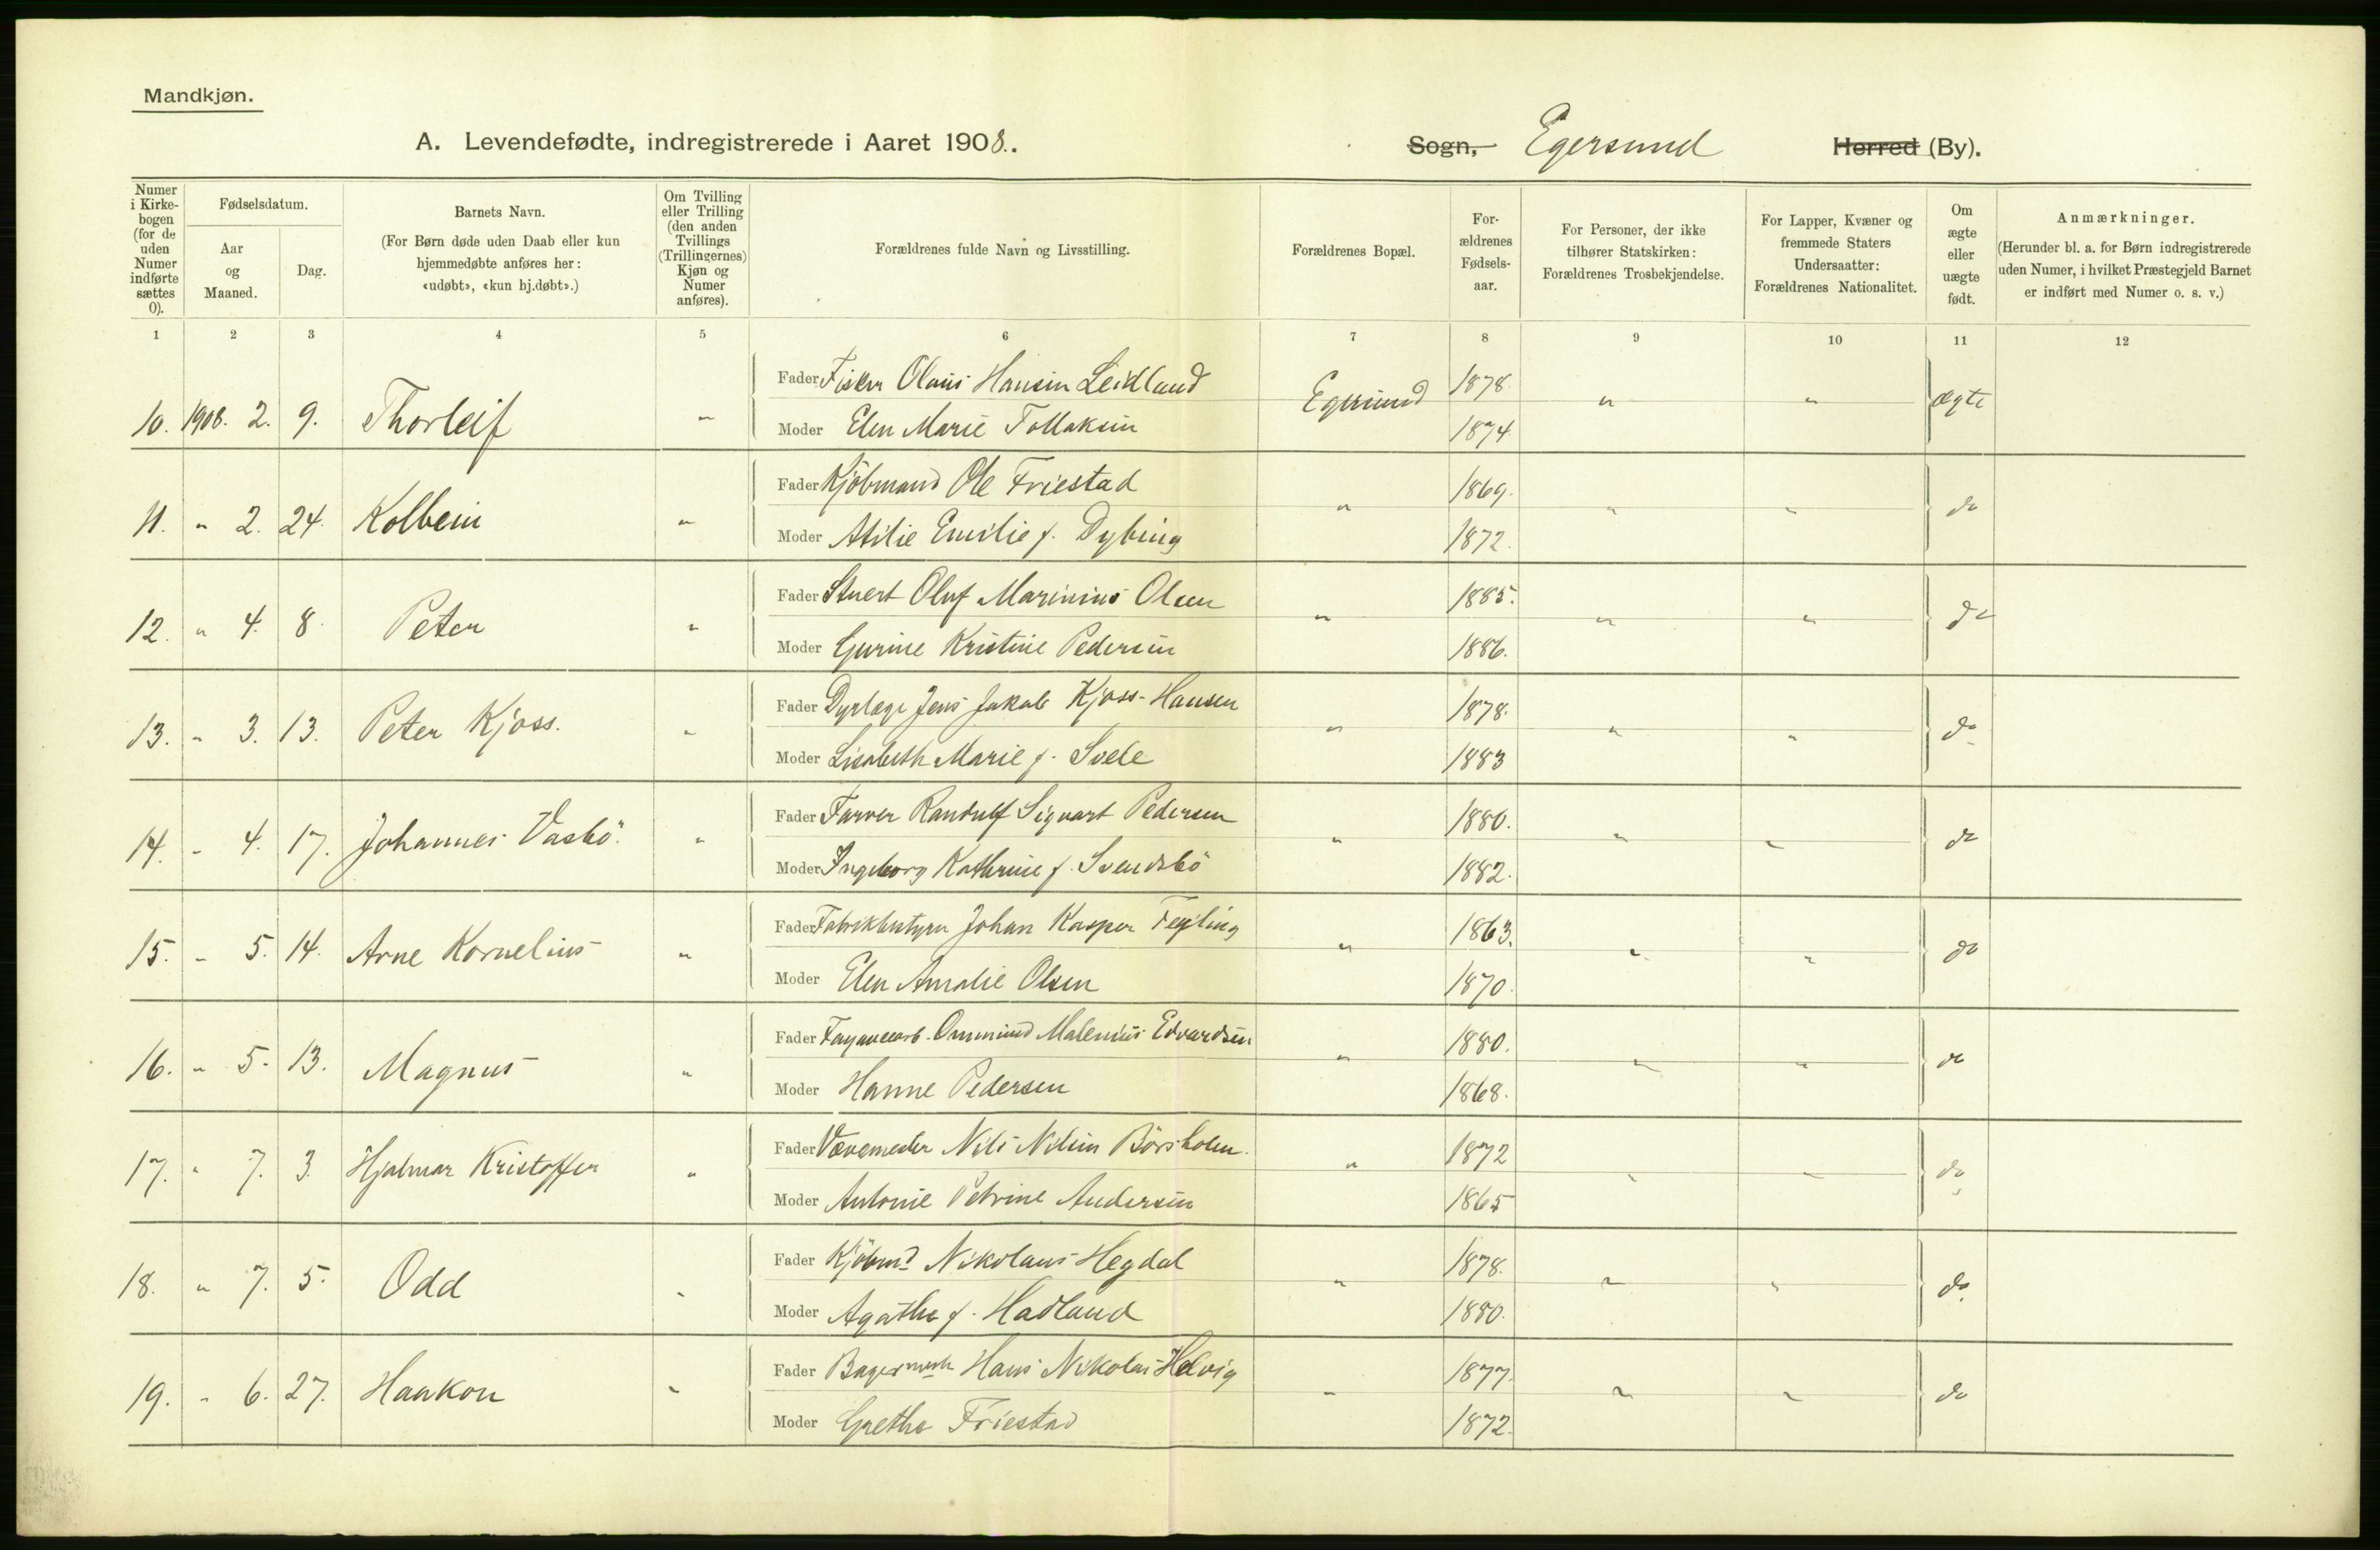 Mandkjøn.
A. Levendefødte, indregistrerede i Aaret 1908.
Sogn, Egersund Herred (By).
Numer i Kirkebogen (for de uden Numer indførte sættes 0).
Fødselsdatum.
Aar og Maaned.
Dag.
Barnets Navn.
(For Børn døde uden Daab eller kun hjemmedøbte anføres her: «udøbt», «kun hj.døbt».)
Om Tvilling eller Trilling (den anden Tvillings (Trillingernes) Kjøn og Numer anføres).
Forældrenes fulde Navn og Livsstilling.
Forældrenes Bopæl.
Forældrenes Fødselsaar.
For Personer, der ikke tilhører Statskirken: Forældrenes Trosbekjendelse.
For Lapper, Kvæner og fremmede Staters Undersaatter: Forældrenes Nationalitet.
Om ægte eller uægte født.
Anmærkninger.
(Herunder bl. a. for Børn indregistrerede uden Numer, i hvilket Præstegjeld Barnet er indført med Numer o. s. v.)
1 2 3 4 5 6 7 8 9 10 11 12
10. 1908. 2. 9. Thorleif " Fader Fisker Olaus Hansen Leidland Egersund 1878 " " ægte
Moder Elen Marie Tollaksen 1874
11. " 2. 24. Kolbein " Fader Kjöbmand Ole Friestad " 1869. " " do
Moder Atilie Emilie f. Dybing 1872.
12. " 4. 8. Peter " Fader Stuert Oluf Marinius Olsen " 1885. " " do
Moder Gurine Kristine Pedersen 1886.
13. " 3. 13. Peter Kjoss. " Fader Dyrlæge Jens Jakob Kjoss-Hansen " 1878. " " do
Moder Lisabeth Marie f. Svele 1883
14. " 4. 17. Johannes Vasbö. " Fader Farver Randulf Sigvart Pedersen " 1880. " " do
Moder Ingeborg Kathrine f. Svendsbö 1882.
15. " 5. 14. Arne Kornelius " Fader Fabrikbestyrer Johan Kasper Feyling " 1863. " " do
Moder Elen Amalie Olsen 1870.
16. " 5. 13. Magnus " Fader Fayancearb. Ommund Malenius Edvardsen " 1880. " " do
Moder Hanne Pedersen 1868.
17. " 7. 3. Hjalmar Kristoffer " Fader Vævemester Nils Nilsen Börsholm. " 1872 " " do
Moder Antonie Petrine Andersen 1865
18. " 7. 5. Odd " Fader Kjöbmd Nikolaus Hegdal " 1878. " " do.
Moder Agathe f. Hadland 1880.
19. " 6. 27. Haakon " Fader Bagermestr Hans Nikolai Helvig " 1877. " " do
Moder Grethe Friestad 1872.